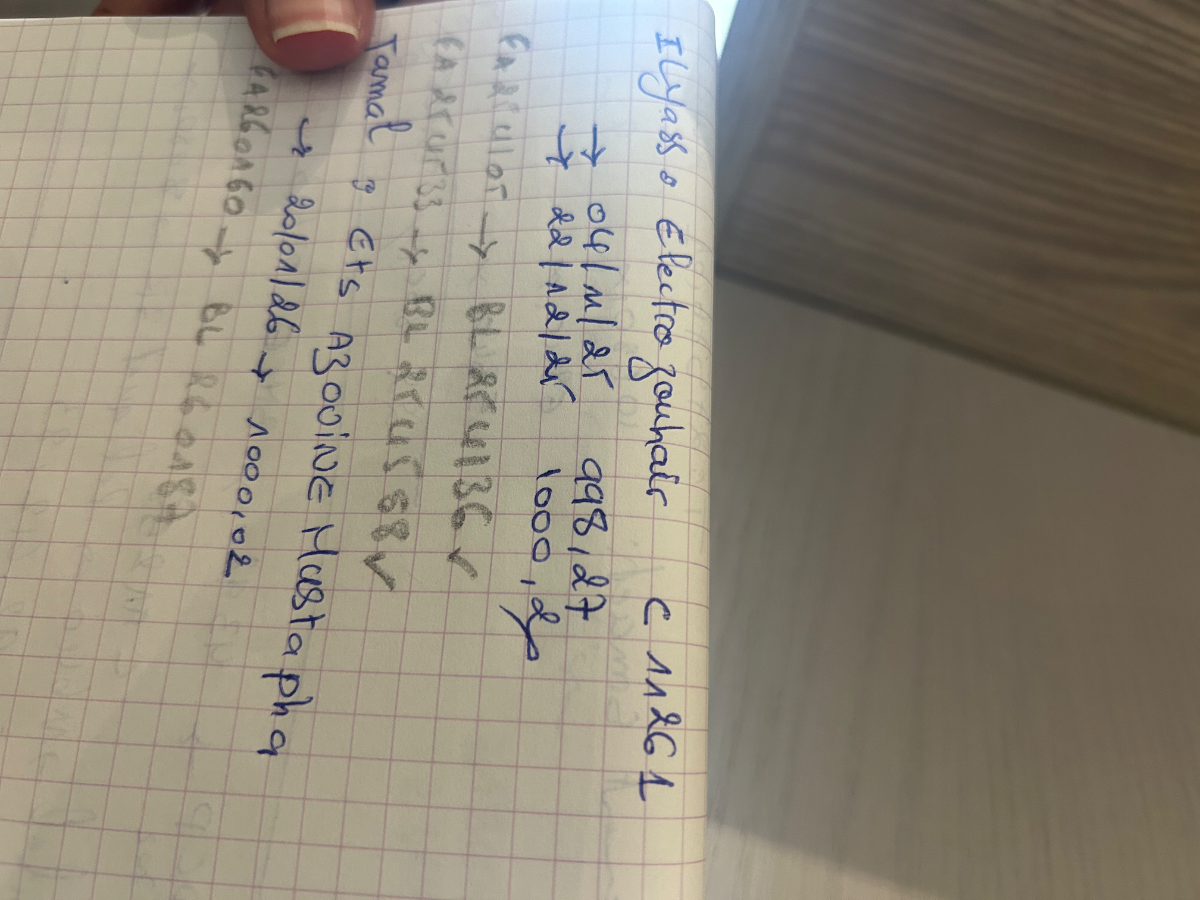 Ilyass : Electro zouhair C 11261
→ 04/11/25 998,27
→ 22/12/25 1000,20
FA 254105 → BL 254136 ✓
FA 254533 → BL 254568 ✓
Jamal : Ets AZOUINE Mustapha
→ 20/01/26 → 1000,02
FA260160 → BL 260187